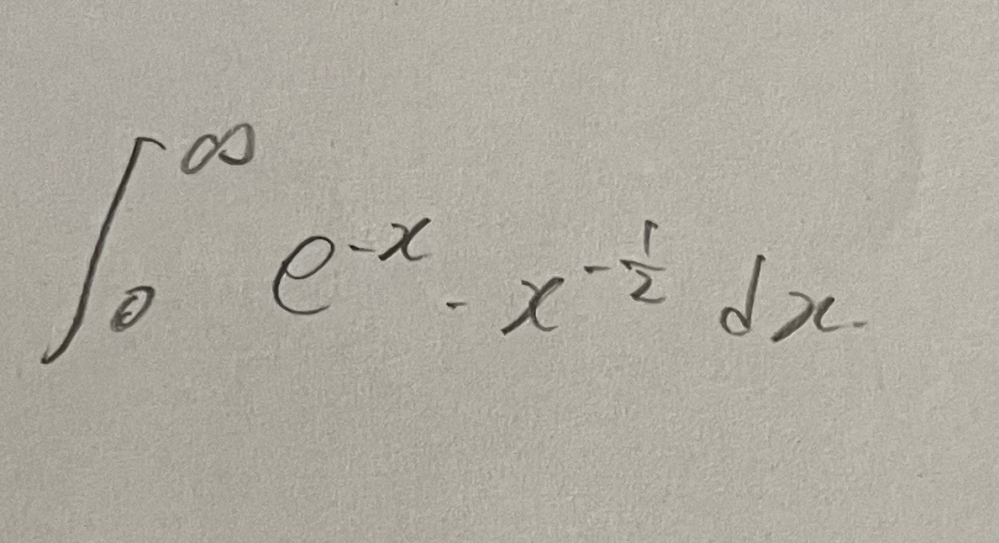 ∫₀^∞ e^{-x} · x^{-1/2} dx.